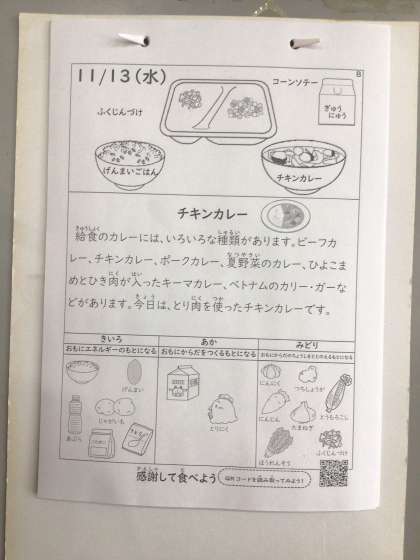 11/13(水)
B
コーンソテー
ふくじんづけ
ぎゅうにゅう
げんまいごはん
チキンカレー
チキンカレー
給食のカレーには、いろいろな種類があります。ビーフカ
レー、チキンカレー、ポークカレー、夏野菜のカレー、ひよこま
めとひき肉が入ったキーマカレー、ベトナムのカリー・ガーな
どがあります。今日は、とり肉を使ったチキンカレーです。
きいろ
あか
みどり
おもにエネルギーのもとになる
おもにからだをつくるもとになる
おもにからだのちょうしをととのえるもとになる
げんまい
じゃがいも
あぶら
とりにく
にんにく
つちしょうが
にんじん
たまねぎ
とうもろこし
ほうれんそう
ふくじんづけ
感謝して食べよう
QRコードを読み取ってみよう!